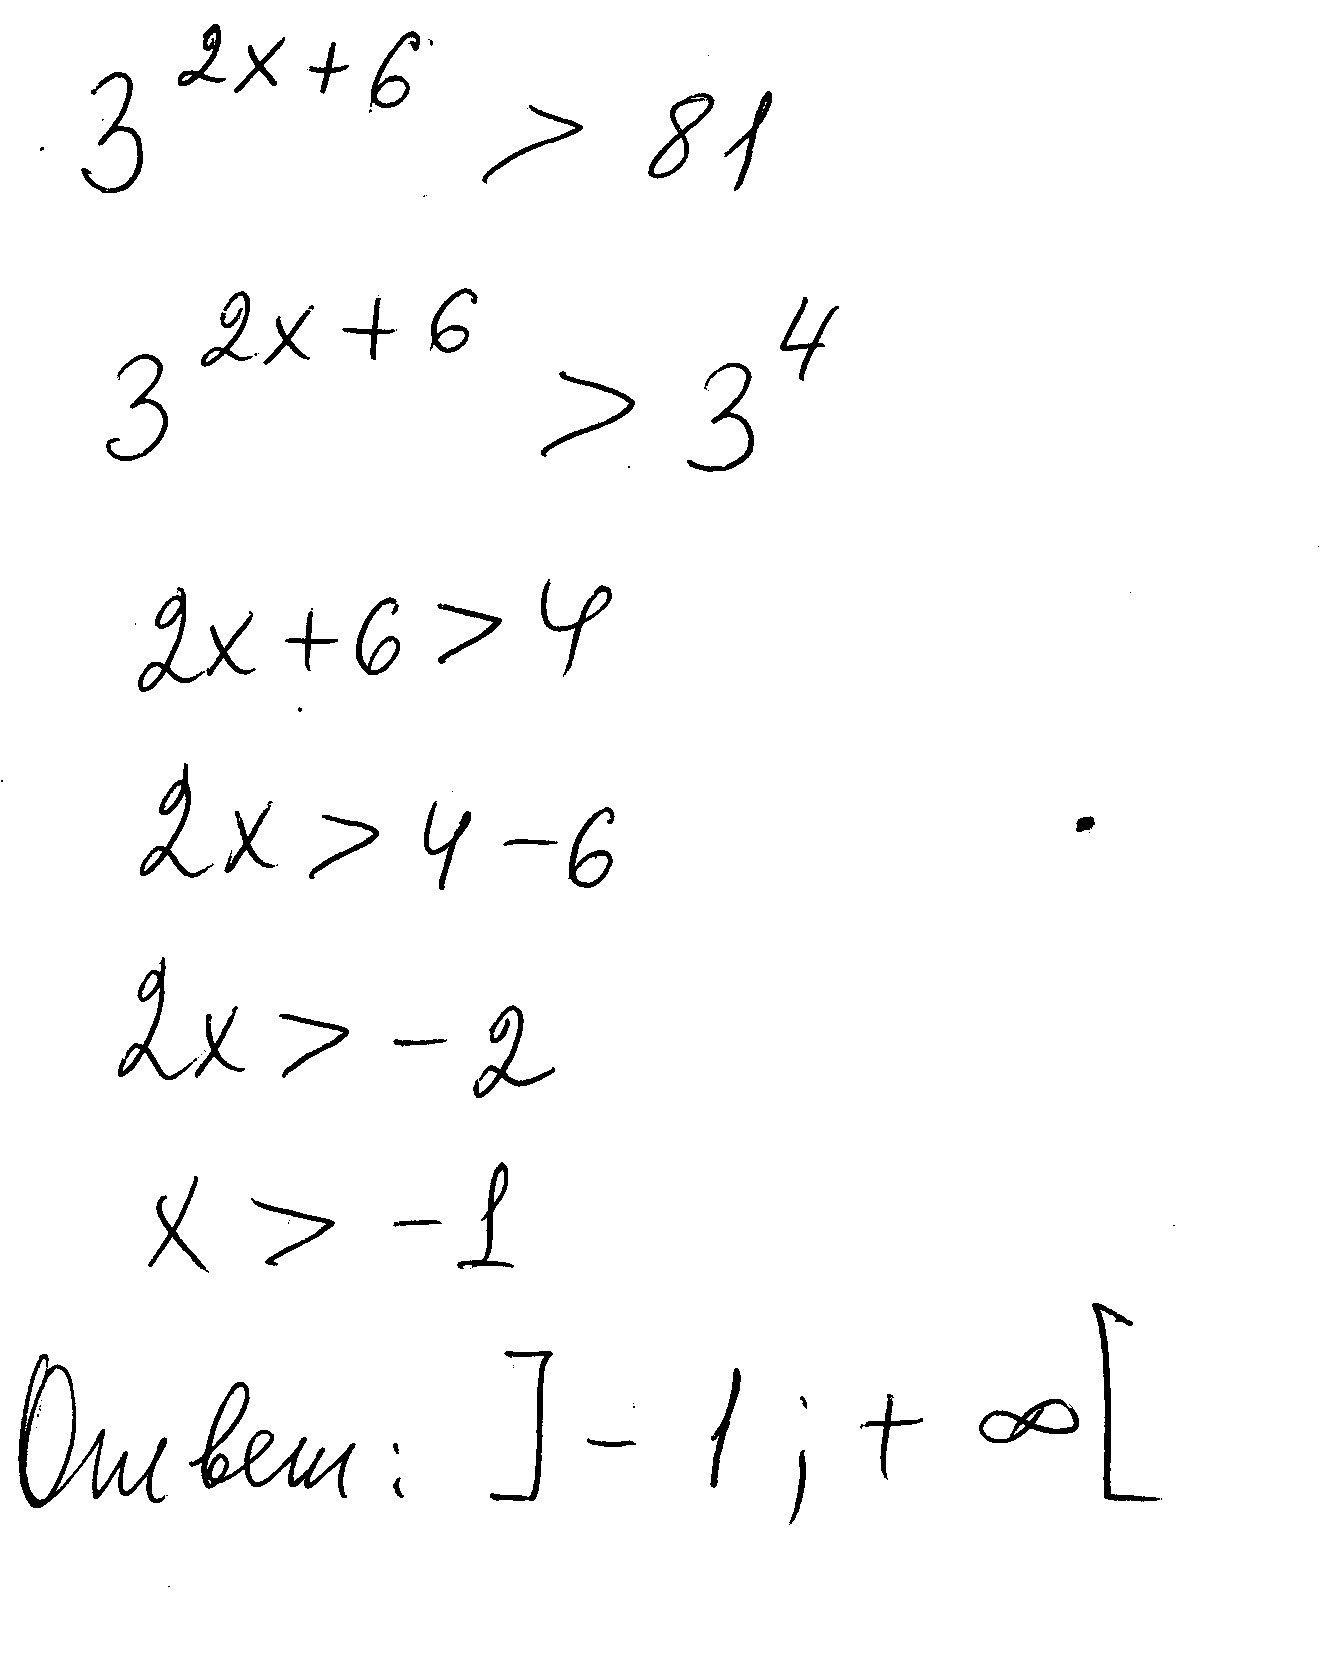 3^{2x+6} > 81
3^{2x+6} > 3^4
2x+6>4
2x > 4-6
2x > -2
x > -1
Ответ: ]-1;+∞[